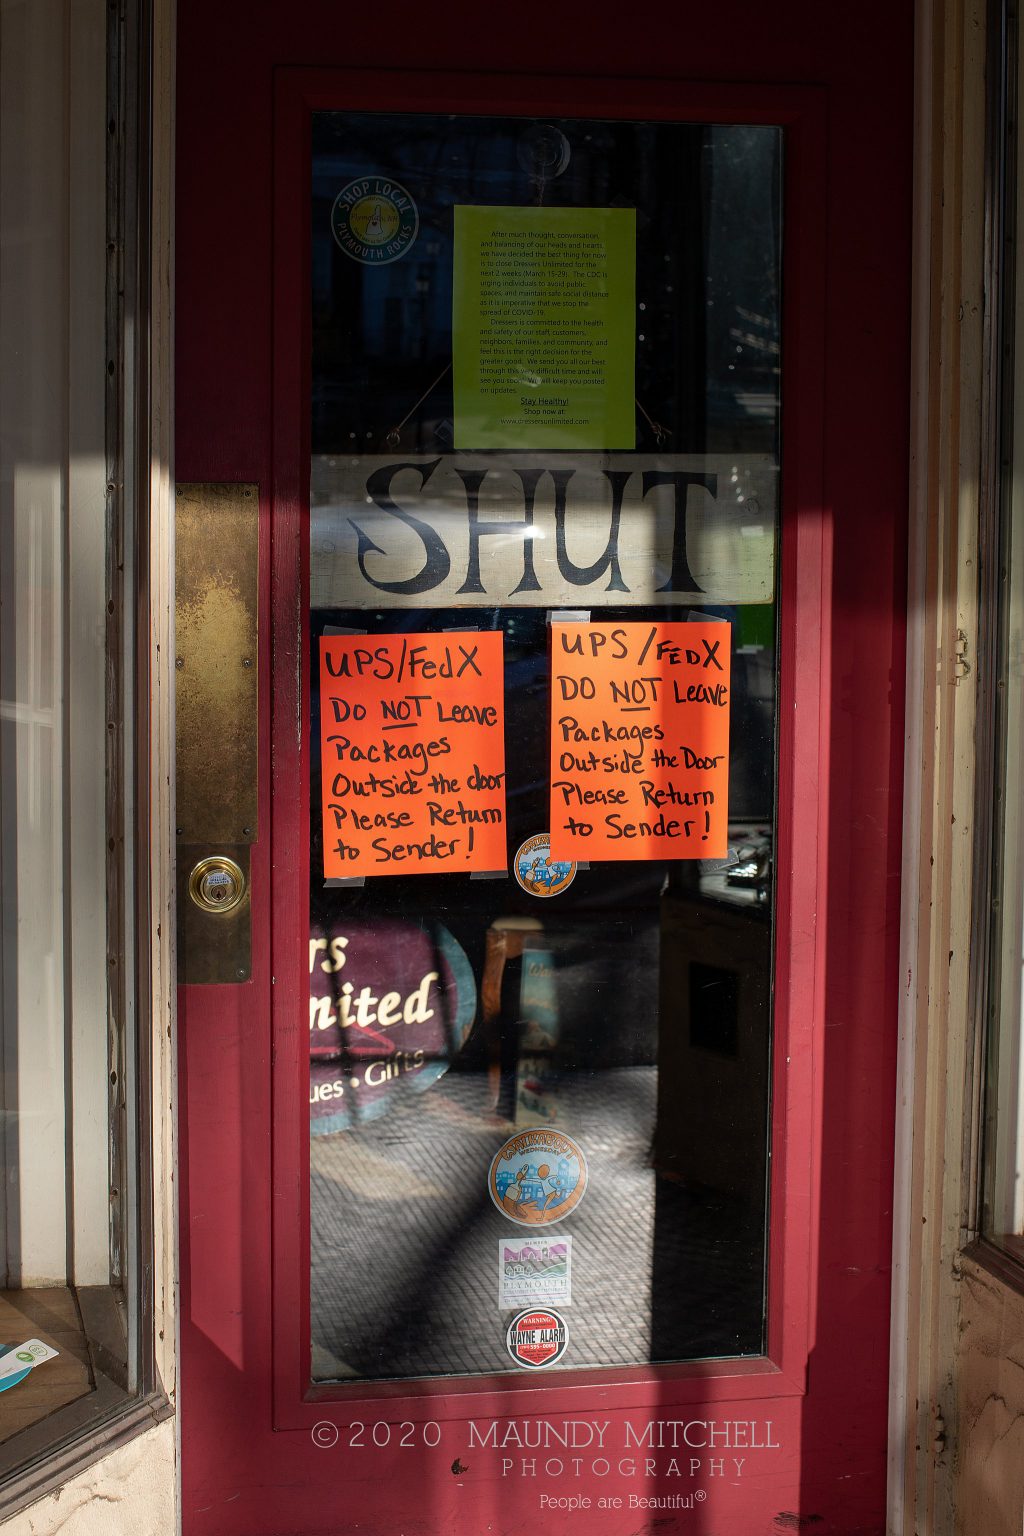 SHOP LOCAL
Plymouth, NH
PLYMOUTH ROCKS
After much thought, conversation,
and balancing of our heads and hearts,
we have decided the best thing for now
is to close Dressers Unlimited for the
next 2 weeks (March 15-29). The CDC is
urging individuals to avoid public
spaces, and maintain safe social distance
as it is imperative that we stop the
spread of COVID-19.
Dressers is committed to the health
and safety of our staff, customers,
neighbors, families, and community, and
feel this is the right decision for the
greater good. We send you all our best
through this very difficult time and will
see you soon! We will keep you posted
on updates.
Stay Healthy!
Shop now at:
www.dressersunlimited.com
SHUT
UPS/FedX
Do NOT Leave
Packages
Outside the door
Please Return
to Sender!
UPS/FEDX
DO NOT Leave
Packages
Outside the Door
Please Return
to Sender!
WALKABOUT
WEDNESDAY
rs
nited
ues • Gifts
WALKABOUT
WEDNESDAY
MEMBER
PLYMOUTH
WARNING!
WAYNE ALARM
© 2020 MAUNDY MITCHELL
PHOTOGRAPHY
People are Beautiful®